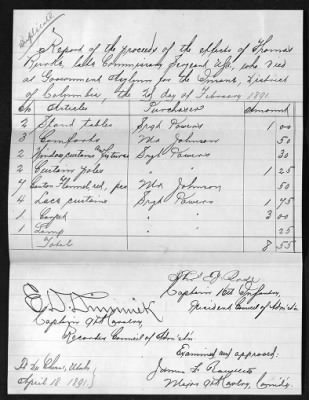 Duplicate
Report of the proceeds of the effects of Thomas
late Commissary Sergeant, USA, who died
at Government Asylum for the Insane, District
of Columbia, the 2d day of February 1891.
No Articles Purchasers Amount
2 Stand tables Sergt Powers 1 00
3 Comforts Mr Johnson 50
2 Window curtains & fixtures Sergt Powers 30
2 Curtain Poles " " 1 25
4 Canton Flannel, red, pcs Mr Johnson 50
4 Lace curtains Sergt Powers 1 95
1 Carpet " " 3 00
1 Lamp " " 25
Total 8 55
Captain 16th Infantry,
President Council of Adm'n
E. D. Dimmick
Captain 9th Cavalry,
Recorder Council of Adm'n
Examined and approved:
James F. Randlett
Major 9th Cavalry, Comd'g.
Ft Du Chesne, Utah,
April 18 1891.